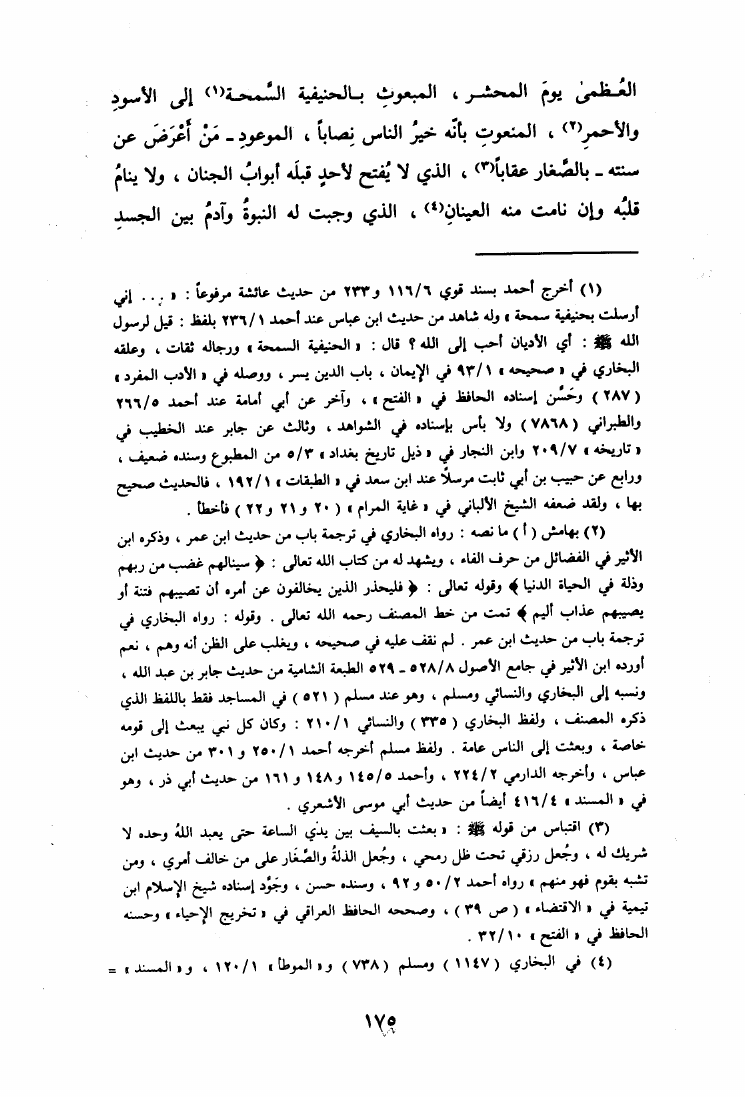 العُـظمىٰ يومَ المحشـر ، المبعوثِ بـالحنيفية السَّمحـة(١) إلى الأسودِ
والأحمرِ(٢) ، المنعوتِ بأنّه خيرُ الناس نِصاباً ، الموعودِ - مَنْ أَعْرَضَ عن
سنته - بالصَّغار عقاباً(٣) ، الذي لا يُفتح لأحدٍ قبلَه أبوابُ الجنان ، ولا ينامُ
قلبُه وإن نامت منه العينانِ(٤) ، الذي وجبت له النبوةُ وآدمُ بين الجسدِ
(١) أخرج أحمد بسند قوي ١١٦/٦ و٢٣٣ من حديث عائشة مرفوعاً : « ... إني
أرسلت بحنيفية سمحة » وله شاهد من حديث ابن عباس عند أحمد ٢٣٦/١ بلفظ : قيل لرسول
الله ﷺ : أي الأديان أحب إلى الله ؟ قال : « الحنيفية السمحة » ورجاله ثقات ، وعلقه
البخاري في « صحيحه » ٩٣/١ في الإيمان ، باب الدين يسر ، ووصله في « الأدب المفرد »
(٢٨٧) وحَسَّن إسناده الحافظ في « الفتح » ، وآخر عن أبي أمامة عند أحمد ٢٦٦/٥
والطبراني (٧٨٦٨) ولا بأس بإسناده في الشواهد ، وثالث عن جابر عند الخطيب في
« تاريخه » ٢٠٩/٧ وابن النجار في « ذيل تاريخ بغداد » ٥/٣ من المطبوع وسنده ضعيف ،
ورابع عن حبيب بن أبي ثابت مرسلاً عند ابن سعد في « الطبقات » ١٩٢/١ ، فالحديث صحيح
بها ، ولقد ضعفه الشيخ الألباني في « غاية المرام » (٢٠ و٢١ و٢٢) فأخطأ .
(٢) بهامش (أ) ما نصه : رواه البخاري في ترجمة باب من حديث ابن عمر ، وذكره ابن
الأثير في الفضائل من حرف الفاء ، ويشهد له من كتاب الله تعالى : ﴿ سينالهم غضب من ربهم
وذلة في الحياة الدنيا ﴾ وقوله تعالى : ﴿ فليحذر الذين يخالفون عن أمره أن تصيبهم فتنة أو
يصيبهم عذاب أليم ﴾ تمت من خط المصنف رحمه الله تعالى . وقوله : رواه البخاري في
ترجمة باب من حديث ابن عمر . لم نقف عليه في صحيحه ، ويغلب على الظن أنه وهم ، نعم
أورده ابن الأثير في جامع الأصول ٥٢٨/٨ - ٥٢٩ الطبعة الشامية من حديث جابر بن عبد الله ،
ونسبه إلى البخاري والنسائي ومسلم ، وهو عند مسلم (٥٢١) في المساجد فقط باللفظ الذي
ذكره المصنف ، ولفظ البخاري (٣٣٥) والنسائي ٢١٠/١ : وكان كل نبي يبعث إلى قومه
خاصة ، وبعثت إلى الناس عامة . ولفظ مسلم أخرجه أحمد ٢٥٠/١ و ٣٠١ من حديث ابن
عباس ، وأخرجه الدارمي ٢٢٤/٢ ، وأحمد ١٤٥/٥ و١٤٨ و١٦١ من حديث أبي ذر ، وهو
في « المسند » ٤١٦/٤ أيضاً من حديث أبي موسى الأشعري .
(٣) اقتباس من قوله ﷺ : « بعثت بالسيف بين يدَي الساعة حتى يعبد اللهُ وحده لا
شريك له ، وجُعل رزقي تحت ظل رمحي ، وجُعل الذلةُ والصَّغار على من خالف أمري ، ومن
تشبه بقوم فهو منهم » رواه أحمد ٥٠/٢ و٩٢ ، وسنده حسن ، وجَوَّد إسناده شيخ الإسلام ابن
تيمية في « الاقتضاء » (ص ٣٩) ، وصححه الحافظ العراقي في « تخريج الإحياء » وحسنه
الحافظ في « الفتح » ٣٢/١٠ .
(٤) في البخاري (١١٤٧) ومسلم (٧٣٨) و« الموطأ » ١٢٠/١ ، و« المسند » =
١٧٥